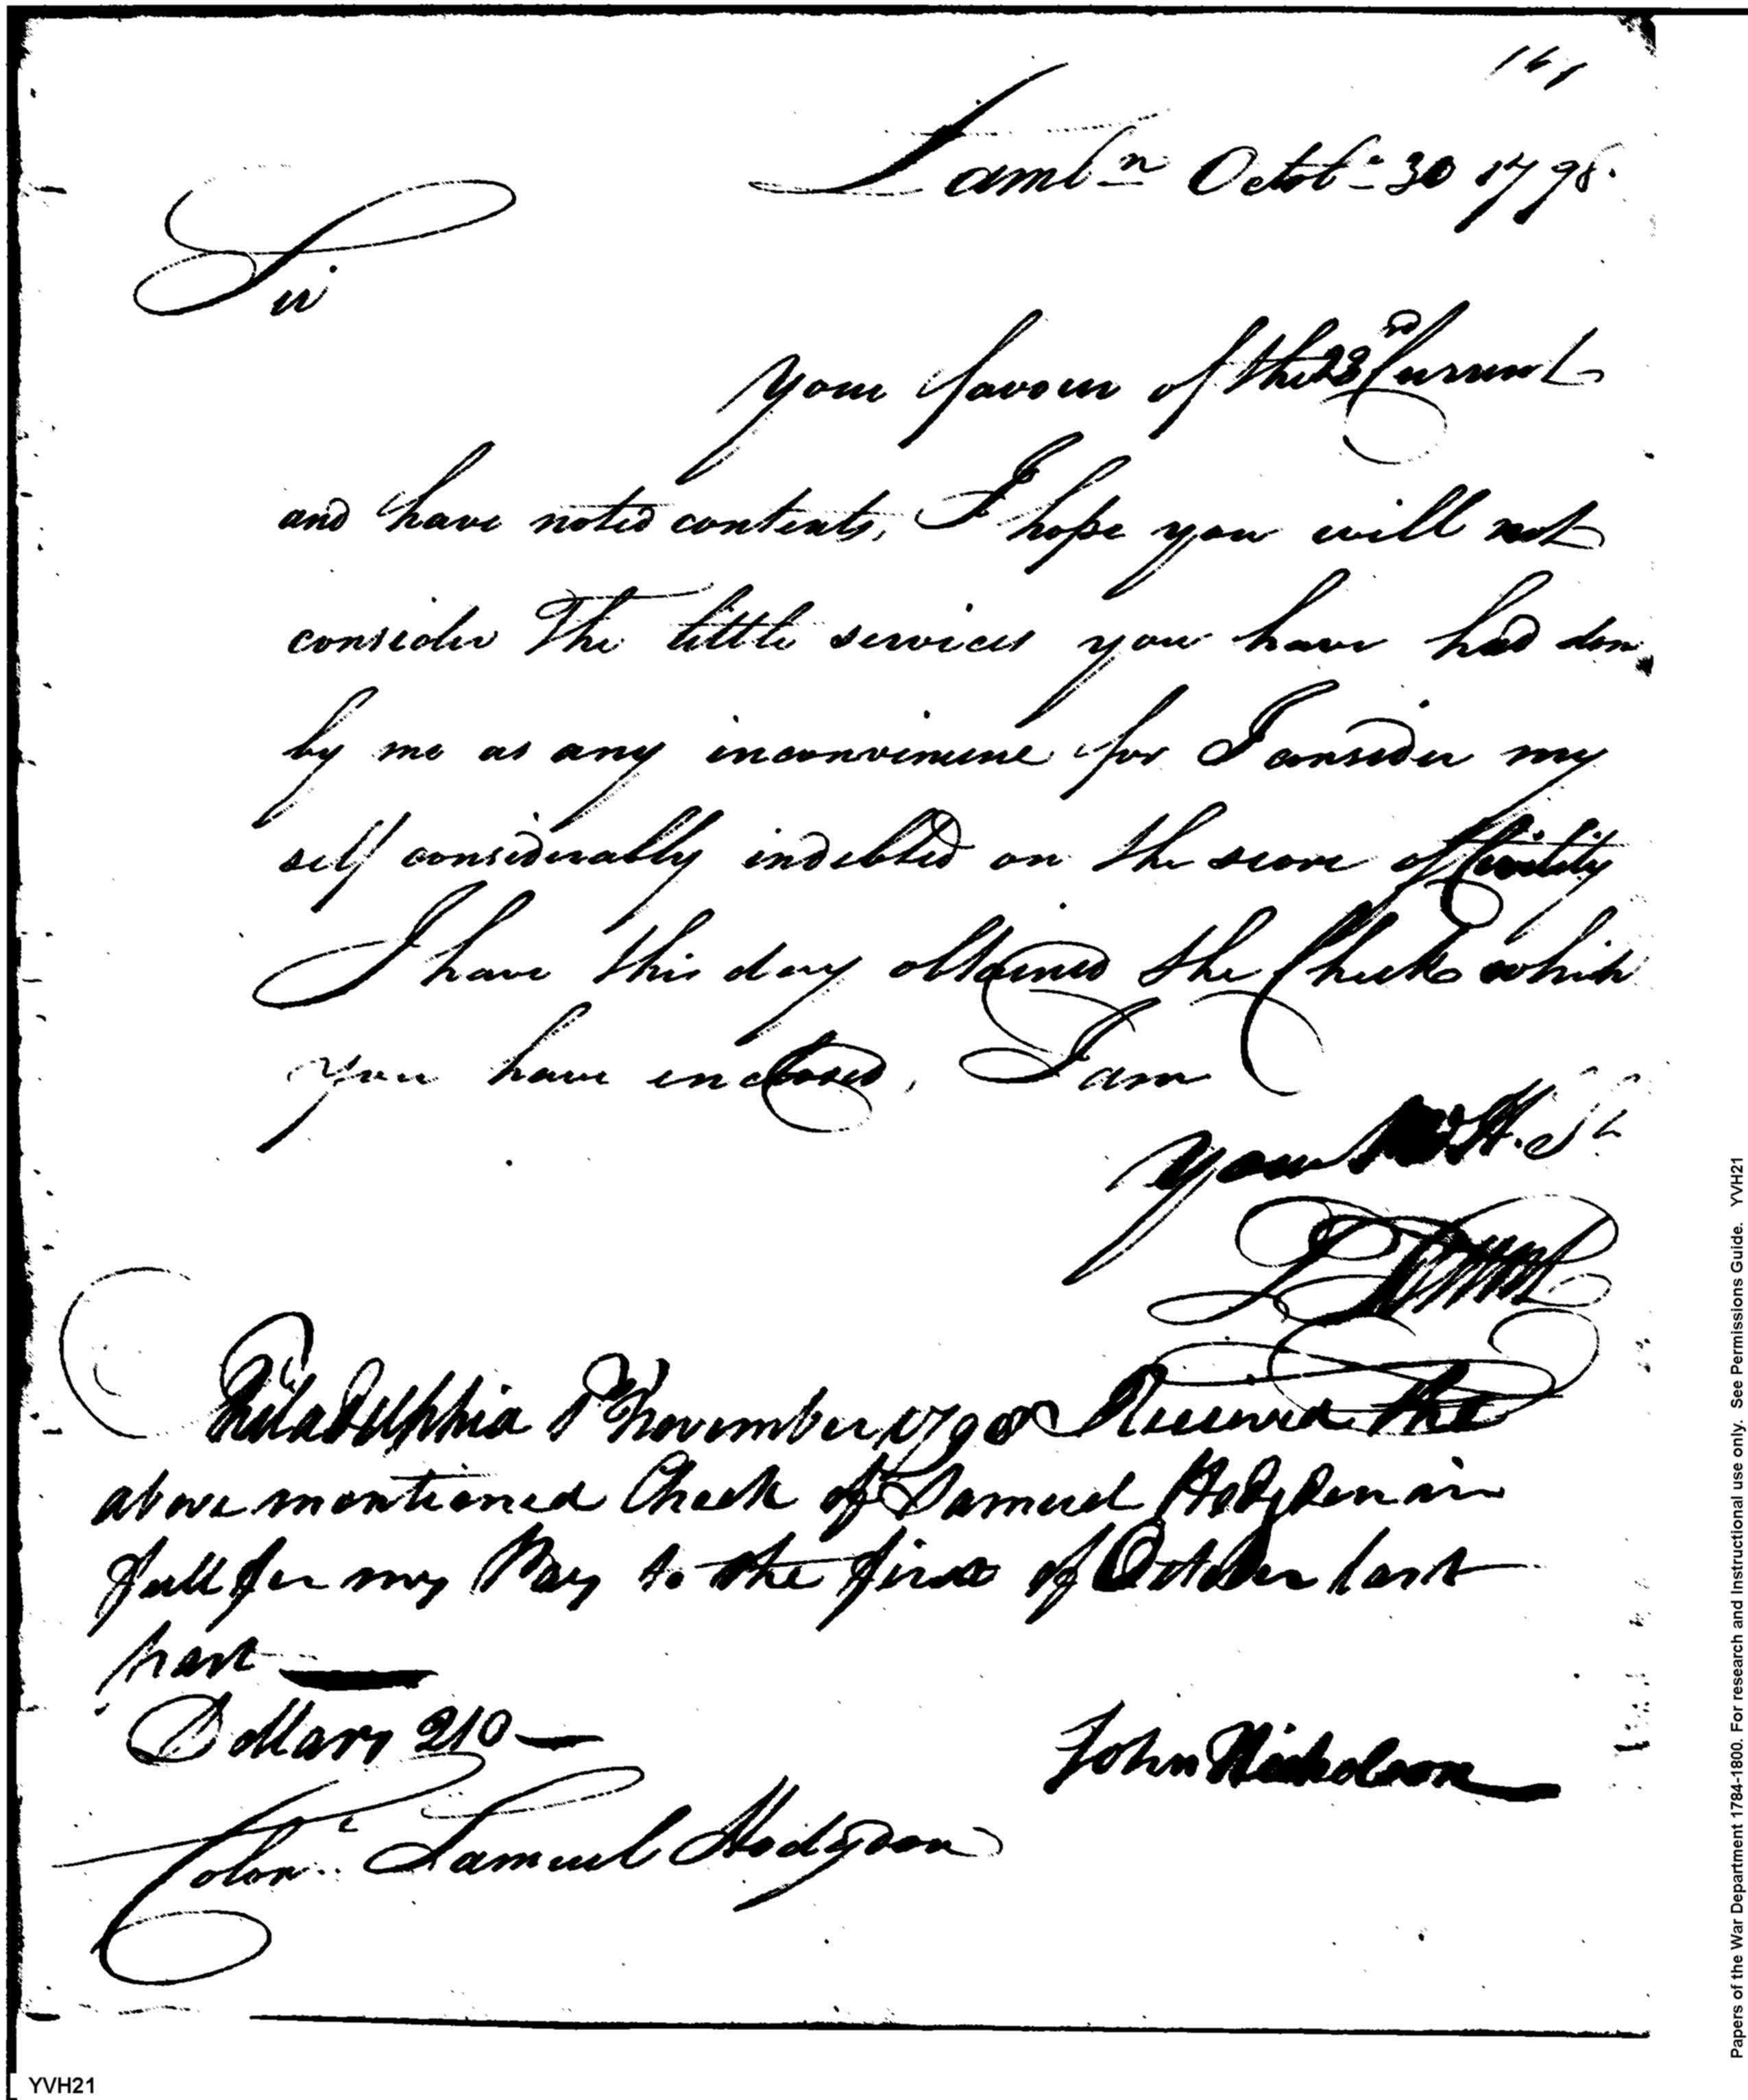 161
Lambn Octobr 30 1798.
Sir
your favour of the 23rd Current
and have noted contents, I hope you will not
consider The little services you have had don
by me as any inconvenience for I consider my
self considerably indebted on the score of Civility
I have this day obtained the Check which
you have enclosed, I am
your H. St
Philadelphia 1st November 1798 Received the
above mentioned Check of Samuel Hodgdon in
full for my Pay to the first of October last
past
Dollars 210
John Nicholson
Colonl Samuel Hodgson
Papers of the War Department 1784-1800. For research and Instructional use only. See Permissions Guide. YVH21
YVH21